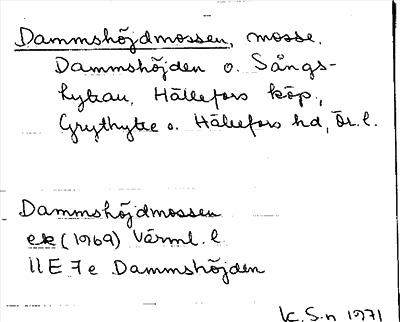 Dammshöjdmossen, mosse.
Dammshöjden o. Sångs-
hyttan, Hällefors köp.,
Grythytte o. Hällefors hd, Ör. l.
Dammshöjdmossen
ek (1969) Värml. l
11E 7e Dammshöjden
K. S-n 1971